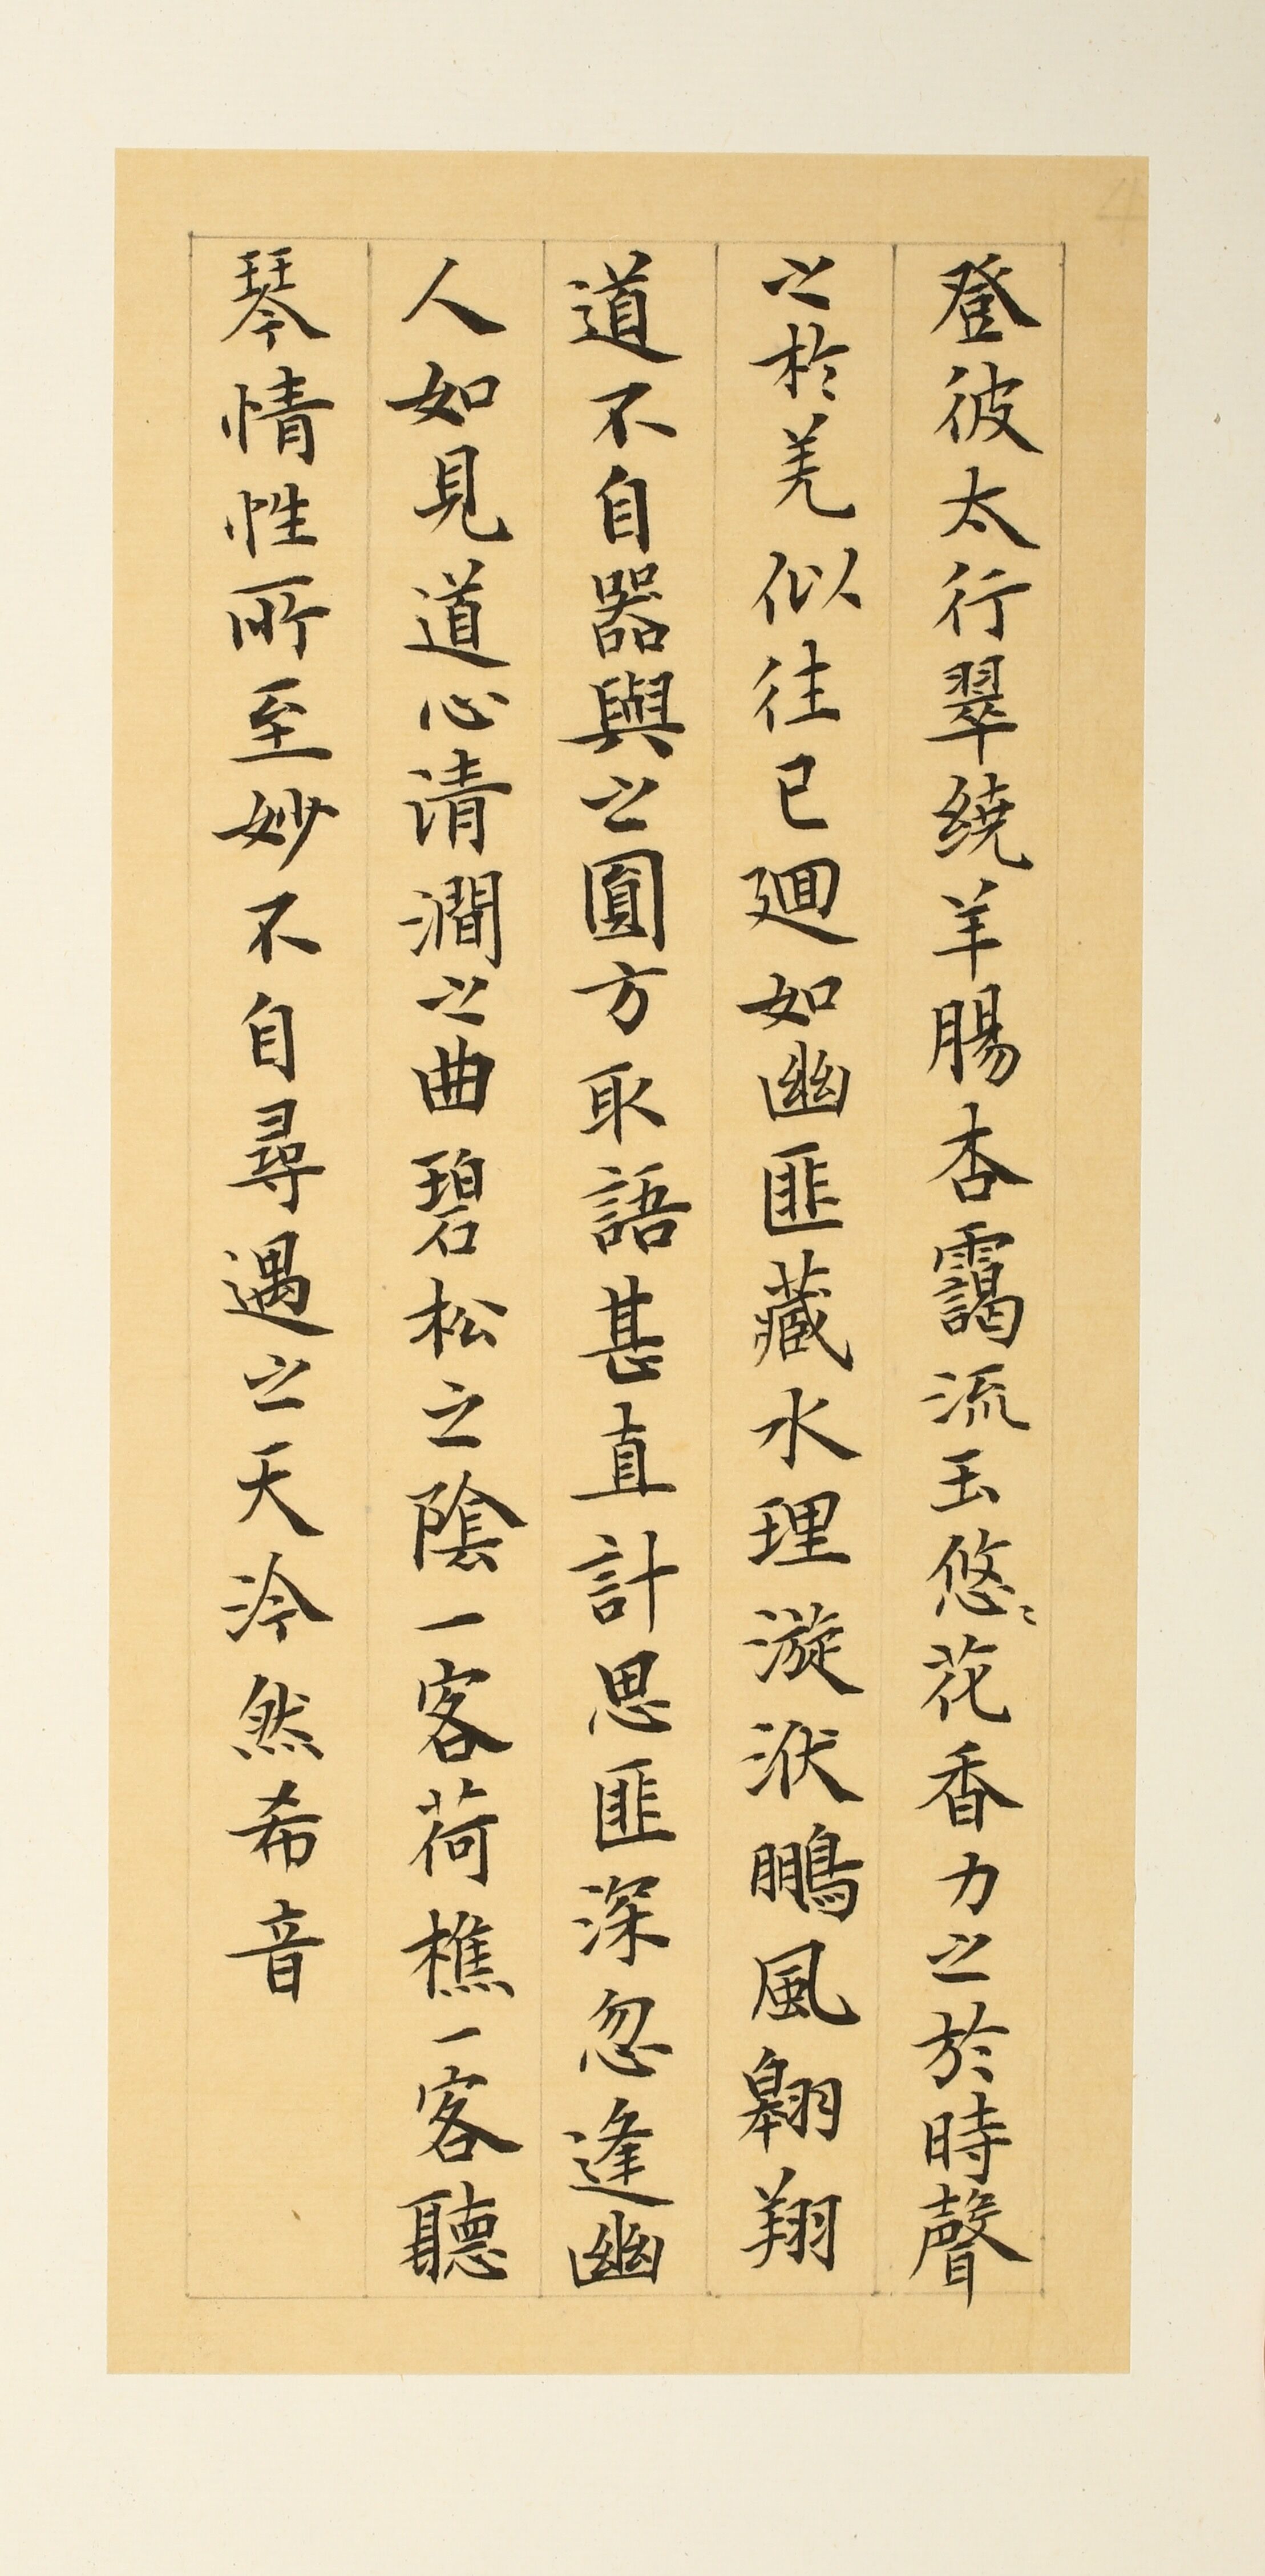 登彼太行翠繞羊腸杳靄流玉悠〻花香力之於時聲
之於羌似往已迴如幽匪藏水理漩洑鵬風翱翔
道不自器與之圓方取語甚直計思匪深忽逢幽
人如見道心清澗之曲碧松之陰一客荷樵一客聽
琴情性所至妙不自尋遇之天泠然希音